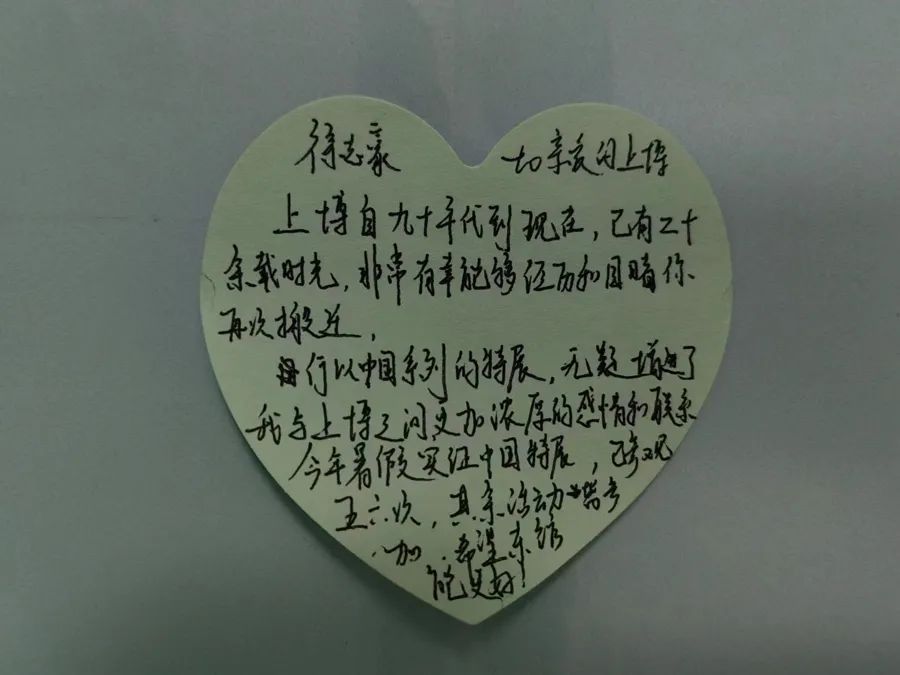 徐志豪 亲爱的上博
上博自九十年代到现在,已有二十
余载时光,非常有幸能够经历和目睹你
再次搬迁,
行以中国系列的特展,无疑增进了
我与上博之间更加浓厚的感情和联系
今年暑假实证中国特展,已参观
五六次,其余活动皆参
加.希望东馆
能更好!